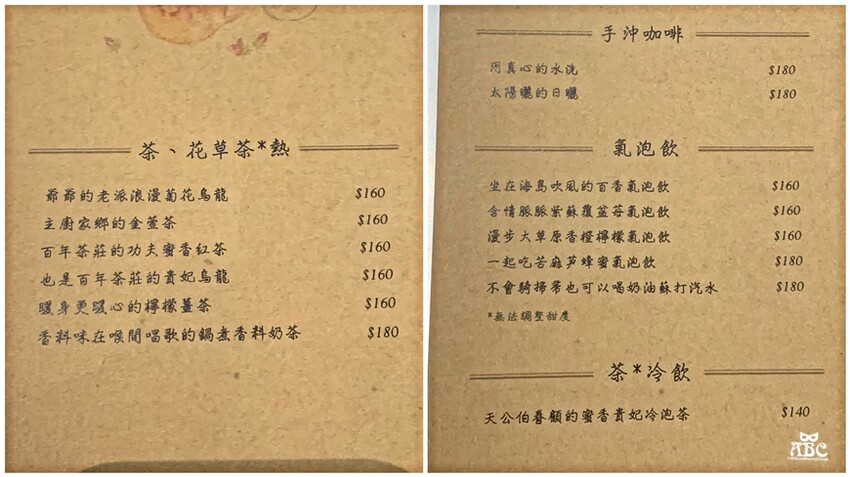 茶、花草茶*熱
爺爺的老派浪漫菊花烏龍 $160
主廚家鄉的金萱茶 $160
百年茶莊的功夫蜜香紅茶 $160
也是百年茶莊的貴妃烏龍 $160
暖身更暖心的檸檬薑茶 $160
香料味在喉間唱歌的鍋煮香料奶茶 $180
手沖咖啡
用真心的水洗 $180
太陽曬的日曬 $180
氣泡飲
坐在海島吹風的百香氣泡飲 $160
含情脈脈紫蘇覆盆莓氣泡飲 $160
漫步大草原香橙檸檬氣泡飲 $160
一起吃苦麻芛蜂蜜氣泡飲 $180
不會騎掃帚也可以喝奶油蘇打汽水 $180
*無法調整甜度
茶*冷飲
天公伯眷顧的蜜香貴妃冷泡茶 $140
ABC